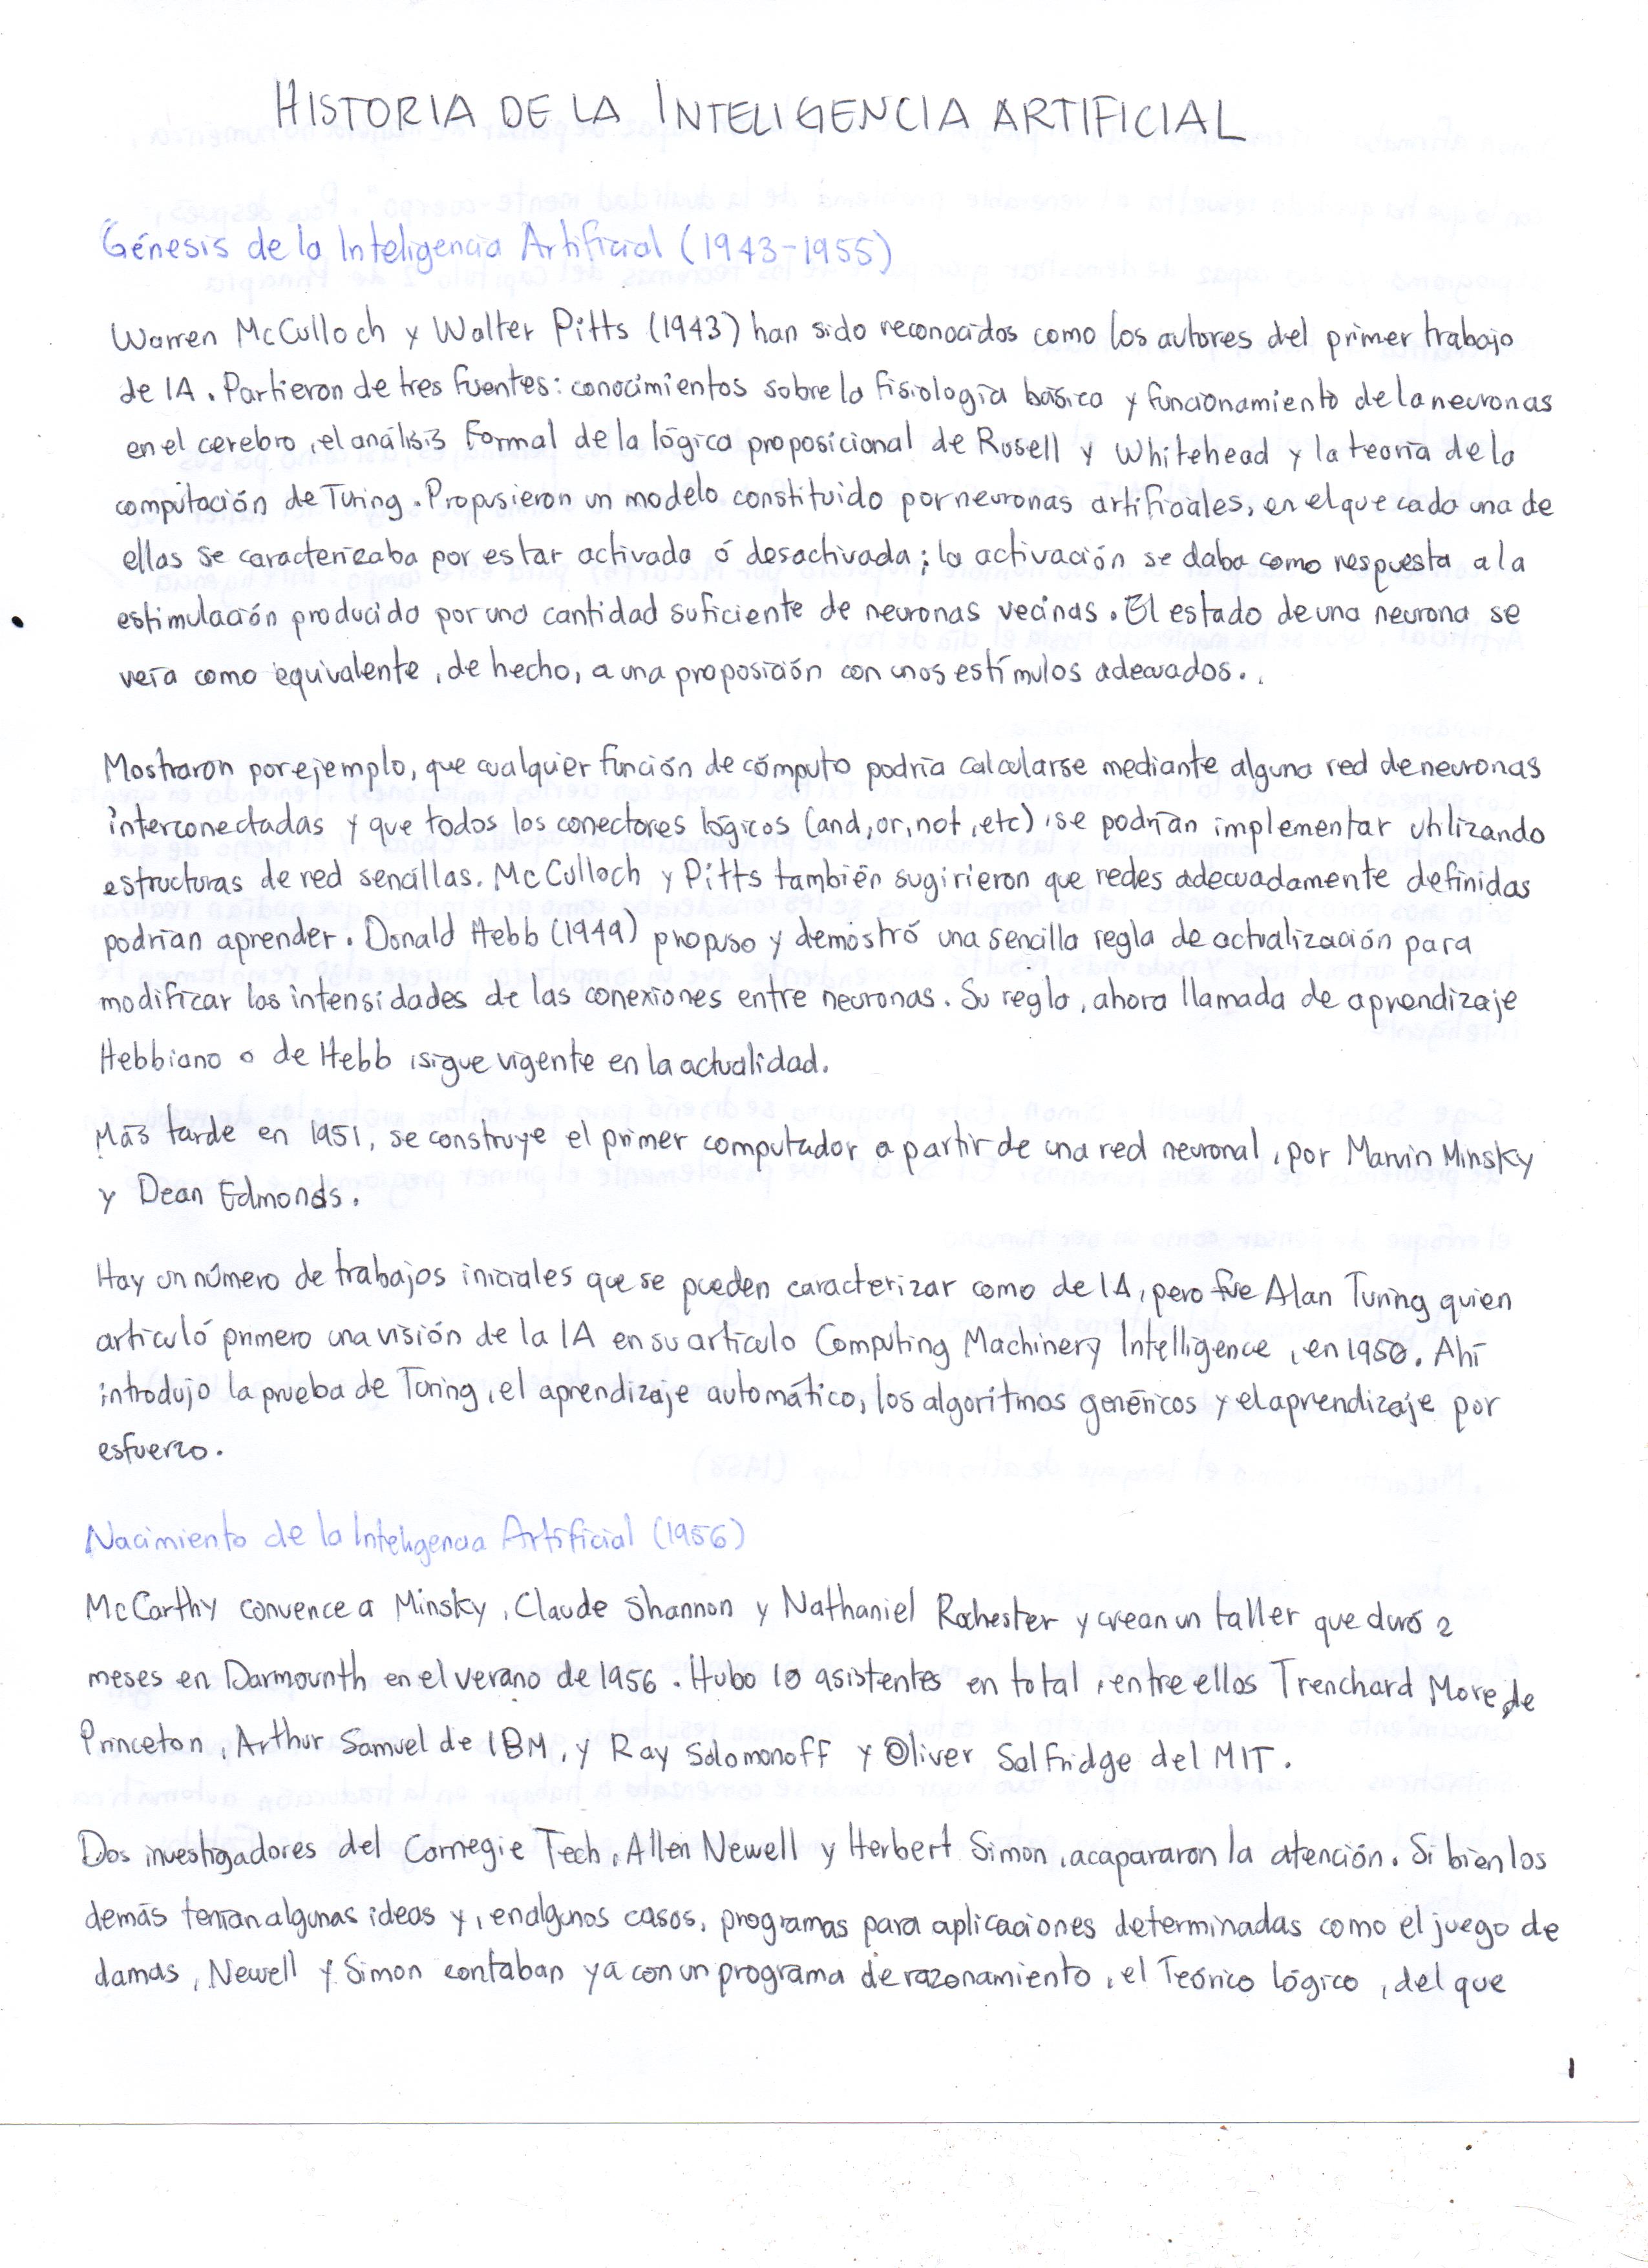 HISTORIA DE LA INTELIGENCIA ARTIFICIAL
Génesis de la Inteligencia Artificial (1943-1955)
Warren McCulloch y Walter Pitts (1943) han sido reconocidos como los autores del primer trabajo
de IA. Partieron de tres fuentes: conocimientos sobre la fisiología básica y funcionamiento de la neuronas
en el cerebro, el análisis Formal de la lógica proposicional de Rusell y Whitehead y la teoría de la
computación de Turing. Propusieron un modelo constituido por neuronas artificiales, en el que cada una de
ellas se caracterizaba por estar activada ó desactivada; la activación se daba como respuesta a la
estimulación producida por una cantidad suficiente de neuronas vecinas. El estado de una neurona se
veía como equivalente, de hecho, a una proposición con unos estímulos adecuados.
Mostraron por ejemplo, que cualquier función de cómputo podría calcularse mediante alguna red de neuronas
interconectadas y que todos los conectores lógicos (and, or, not, etc), se podrían implementar utilizando
estructuras de red sencillas. McCulloch y Pitts también sugirieron que redes adecuadamente definidas
podrían aprender. Donald Hebb (1949) propuso y demostró una sencilla regla de actualización para
modificar las intensidades de las conexiones entre neuronas. Su regla, ahora llamada de aprendizaje
Hebbiano o de Hebb, sigue vigente en la actualidad.
Más tarde en 1951, se construye el primer computador a partir de una red neuronal, por Marvin Minsky
y Dean Edmonds.
Hay un número de trabajos iniciales que se pueden caracterizar como de IA, pero fue Alan Turing quien
articuló primero una visión de la IA en su artículo Computing Machinery Intelligence, en 1950. Ahí
introdujo la prueba de Turing, el aprendizaje automático, los algorítmos genéricos y el aprendizaje por
esfuerzo.
Nacimiento de la Inteligencia Artificial (1956)
McCarthy convence a Minsky, Claude Shannon y Nathaniel Rochester y crean un taller que duró 2
meses en Darmounth en el verano de 1956. Hubo 10 asistentes en total, entre ellos Trenchard More de
Princeton, Arthur Samuel de IBM, y Ray Solomonoff y Oliver Selfridge del MIT.
Dos investigadores del Carnegie Tech, Allen Newell y Herbert Simon, acapararon la atención. Si bien los
demás tenían algunas ideas y, en algunos casos, programas para aplicaciones determinadas como el juego de
damas, Newell y Simon contaban ya con un programa de razonamiento, el Teórico lógico, del que
1